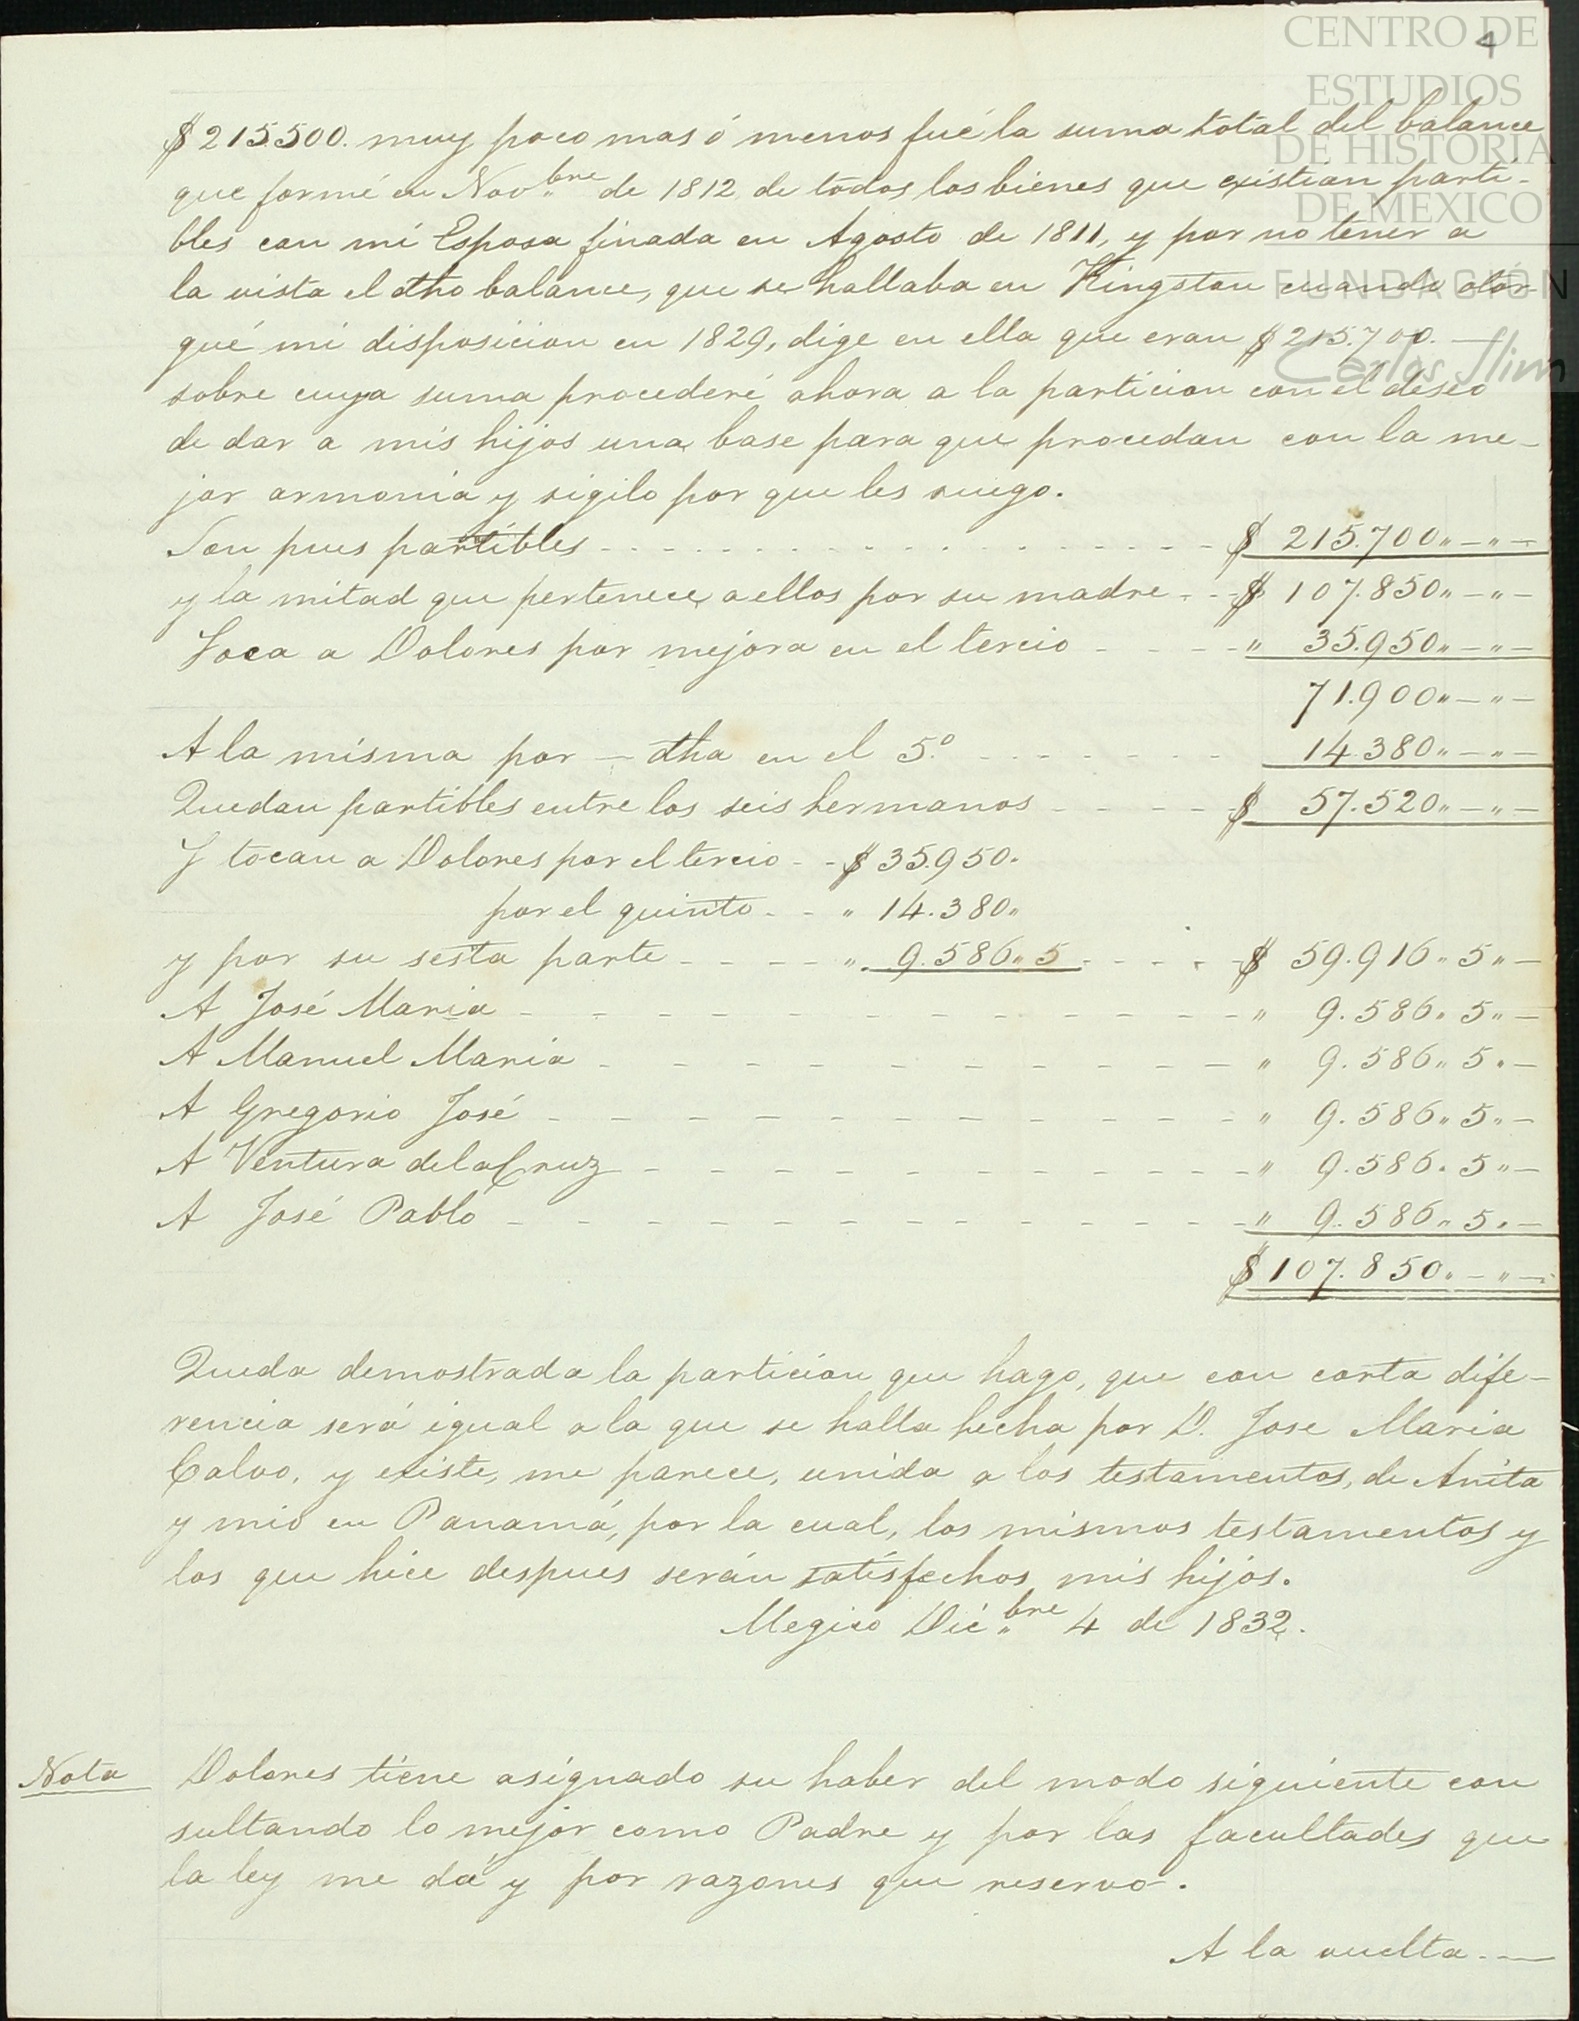 4
CENTRO DE
ESTUDIOS
DE HISTORIA
DE MEXICO
FUNDACIÓN
Carlos Slim
$215.500. muy poco mas ó menos fué la suma total del balance
que formé en Nov.bre de 1812 de todos los bienes que existian parti-
bles con mi Esposa finada en Agosto de 1811, y por no tener a
la vista el dho balance, que se hallaba en Kingston cuando otor-
gué mi disposicion en 1829, dige en ella que eran $215.700. —
sobre cuya suma procederé ahora a la particion con el deseo
de dar a mis hijos una base para que procedan con la me-
jor armonia y sigilo por que les ruego.
Son pues partibles - - - - $ 215.700 „ — „ —
y la mitad que pertenece a ellos por su madre - - $ 107.850 „ — „ —
Toca a Dolores por mejora en el tercio - - - - „ 35.950 „ — „ —
71.900 „ — „ —
A la misma por — dha en el 5.º - - - - 14.380 „ — „ —
Quedan partibles entre los seis hermanos - - - - $ 57.520 „ — „ —
Y tocan a Dolores por el tercio - - $ 35.950.
por el quinto - - „ 14.380 „
y por su sesta parte - - - - „ 9.586 „ 5 - - - - $ 59.916 „ 5 „ —
A José Maria - - - - „ 9.586 „ 5 „ —
A Manuel Maria - - - - „ 9.586 „ 5 „ —
A Gregorio José - - - - „ 9.586 „ 5 „ —
A Ventura de la Cruz - - - - „ 9.586 „ 5 „ —
A José Pablo - - - - „ 9.586 „ 5 „ —
$ 107.850 „ — „ —
Queda demostrada la particion que hago, que con corta dife-
rencia será igual a la que se halla hecha por D. Jose Maria
Calvo, y existe, me parece, unida a los testamentos, de Anita
y mio en Panamá, por la cual, los mismos testamentos y
los que hice despues serán satisfechos mis hijos.
Megico Dic.bre 4 de 1832.
Nota
Dolores tiene asignado su haber del modo siguiente con
sultando lo mejor como Padre y por las facultades que
la ley me dá y por razones que reservo.
A la vuelta —